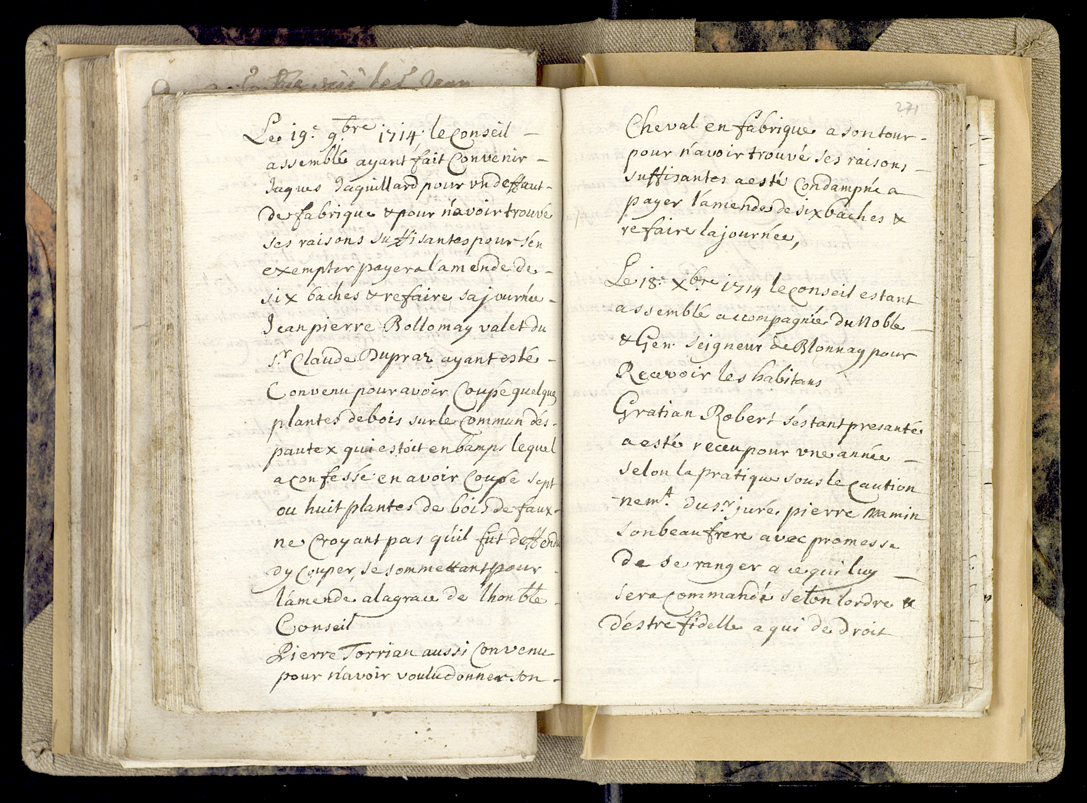 Le 19.e 9.bre 1714 le Conseil
assemblé ayant fait Convenir
Jaques Jaquillard pour vn deffaut
de fabrique & pour n'avoir trouvé
ses raisons suffisantes pour s'en
exempter payera l'amende de
six baches & refaire sa journée
Jean pierre Bollomay valet du
s.r Claude Dupraz ayant esté
Convenu pour avoir Coupé quelque
plantes de bois sur le Commun dés
pautex qui estoit en bamps lequel
a confessé en avoir Coupé sept
ou huit plantes de bois de faux
ne Croyant pas qu'il fut deffendu
d'y Couper, se sommettant pour
l'amende a la grace de lhon.ble
Conseil
Pierre Torrian aussi Convenu
pour n'avoir voulu donner son
271
Cheval en fabrique a son tour
pour n'avoir trouvé ses raisons
suffisantes a esté Condampné a
payer l'amende de six baches &
refaire la journée,
Le 18.e Xbre 1714 le Conseil estant
assemblé accompagnée du Noble
& Gen. Seigneur de Blonnay pour
Recevoir les habitans
Gratian Robert s'estant presanté
a esté receu pour vne année
selon la pratique sous le Caution
nem.t du s.r juré pierre Mamin
son beaufrere avec promesse
de se ranger a ce qui luy
sera commandé selon lordre &
d'estre fidelle a qui de droit